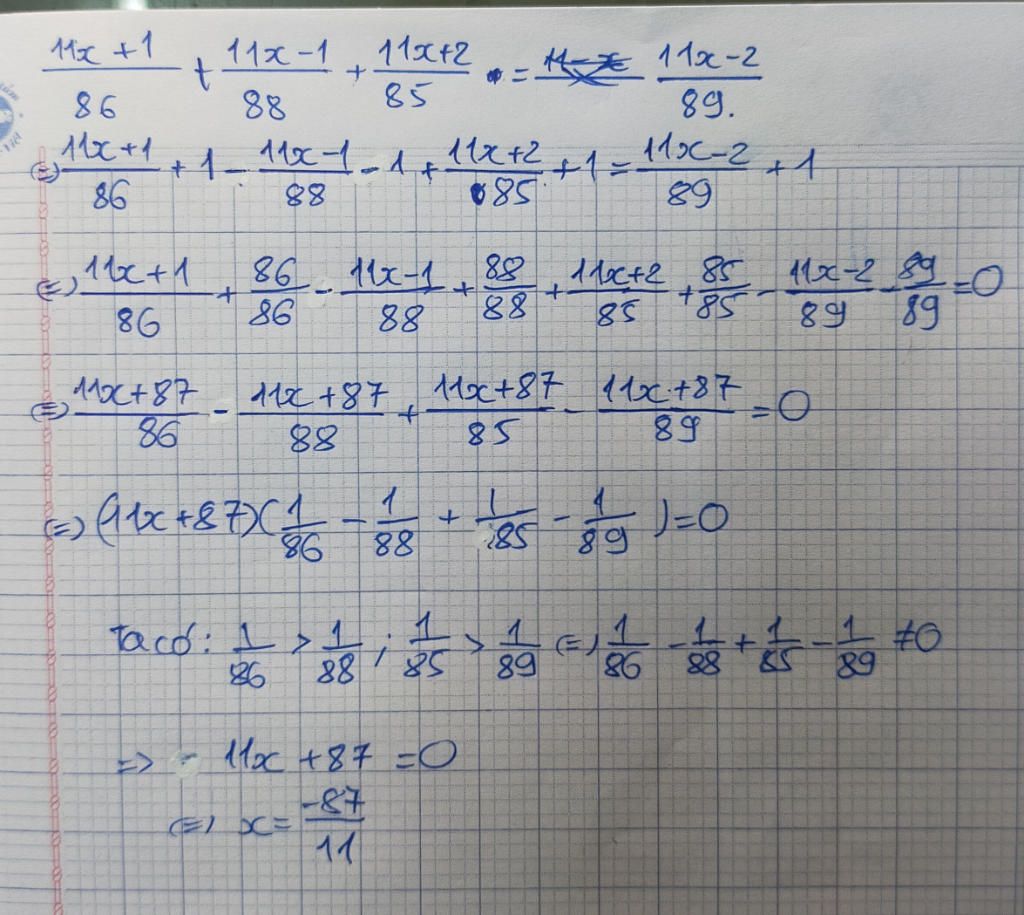 (11x + 1)/86 + (11x - 1)/88 + (11x+2)/85 = (11x - 2)/89.
(=) (11x+1)/86 + 1 - (11x-1)/88 - 1 + (11x+2)/85 + 1 = (11x-2)/89 + 1
(=) (11x+1)/86 + 86/86 - (11x-1)/88 + 88/88 + (11x+2)/85 + 85/85 - (11x-2)/89 - 89/89 = 0
(=) (11x+87)/86 - (11x+87)/88 + (11x+87)/85 - (11x+87)/89 = 0
(=) (11x+87)(1/86 - 1/88 + 1/85 - 1/89) = 0
Ta có: 1/86 > 1/88 ; 1/85 > 1/89 (=) 1/86 - 1/88 + 1/85 - 1/89 ≠ 0
=> - 11x + 87 = 0
(=) x = -87/11